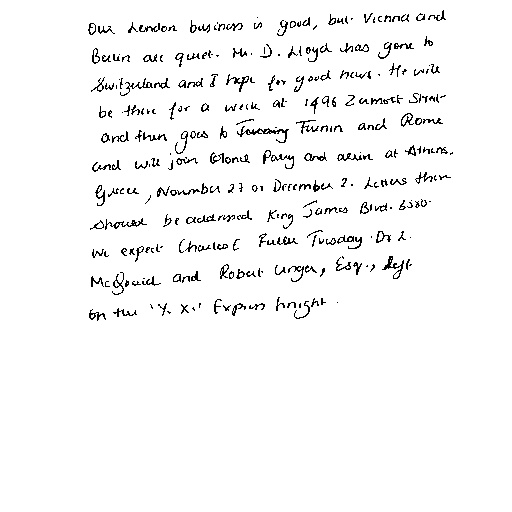 Our London business is good, but Vienna and
Berlin are quiet. Mr. D. Lloyd has gone to
Switzerland and I hope for good news. He will
be there for a week at 1496 Zermott Street
and then goes to Turin and Rome
and will join Colonel Parry and arrive at Athens,
Greece, November 27 or December 2. Letters there
should be addressed King James Blvd. 6580.
We expect Charles E Fuller Tuesday. Dr L.
McQuaid and Robert Unger, Esq., left
on the "Y. X." Express tonight.